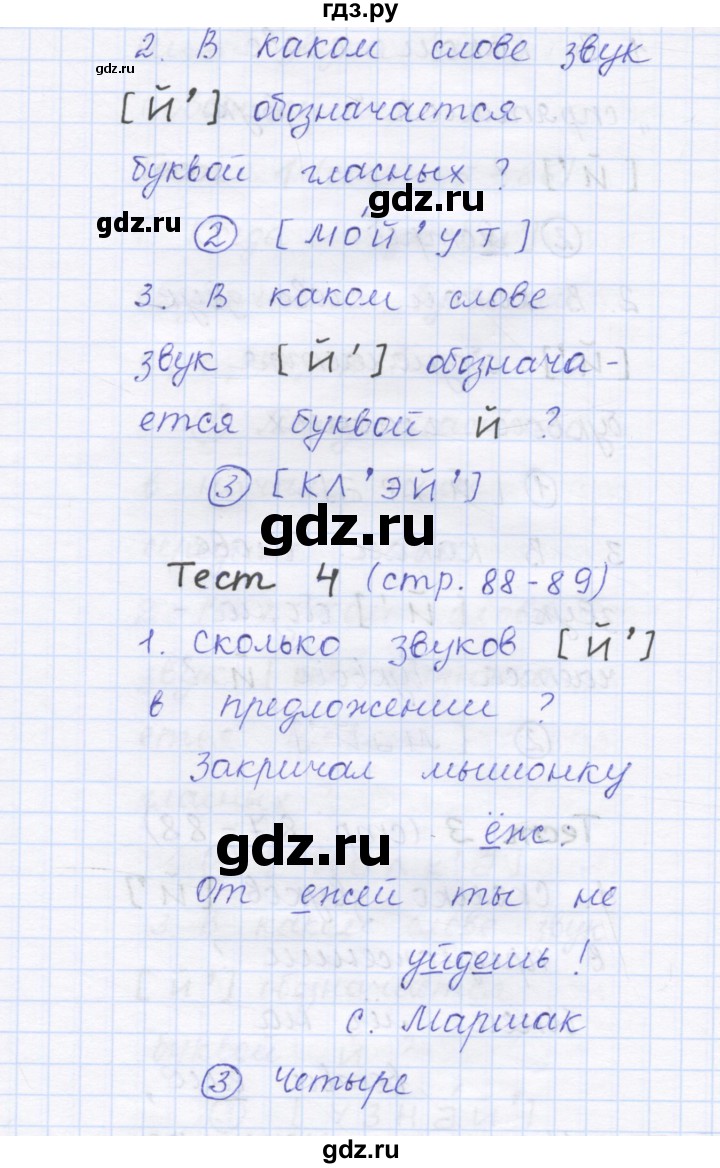 гдз.ру
2. В каком слове звук
gdz.ru
[й’] обозначается
буквой гласных?
gdz.ru
gdz.ru
② [мо́й’ут]
3. В каком слове
звук [й’] обознача-
ется буквой й?
③ [кл’эй’]
gdz.ru
Тест 4 (стр. 88-89)
1. Сколько звуков [й’]
в предложении?
Закричал мышонку
ёж:
gdz.ru
От ежей ты не
уйдешь!
С. Маршак
③ Четыре
gdz.ru
gdz.ru